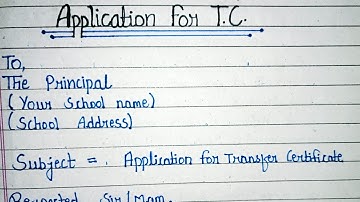 Application for T.C.
To,
The Principal
(Your School name)
(School Address)
Subject = . Application for Transfer Certificate
Respected Sir/Mam,